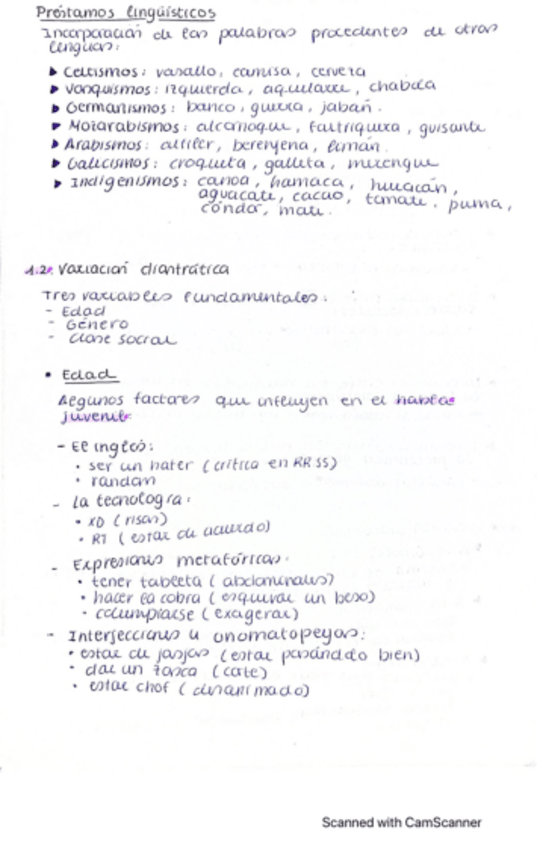 Préstamos lingüísticos
Incorporación de las palabras procedentes de otras
lenguas:
▶ Celtismos: vasallo, camisa, cerveza
▶ Vasquismos: izquierda, aquelarre, chabola
▶ Germanismos: banco, guerra, jabón.
▶ Mozarabismos: alcornoque, faltriquera, guisante
▶ Arabismos: alfiler, berenjena, limón.
▶ Galicismos: croqueta, galleta, merengue
▶ Indigenismos: canoa, hamaca, huracán,
aguacate, cacao, tomate, puma,
cóndor, mate.
1.2. Variación diastrática
Tres variables fundamentales:
- Edad
- Género
- Clase social
• Edad
Algunos factores que influyen en el hablas
juvenil
- El inglés:
• ser un hater (crítica en RRSS)
• random
- La tecnología:
• XD (risas)
• RT (estar de acuerdo)
- Expresiones metafóricas:
• tener tableta (abdominales)
• hacer la cobra (esquivar un beso)
• columpiarse (exagerar)
- Interjecciones u onomatopeyas:
• estar de jasjas (estar pasándolo bien)
• dar un zasca (corte)
• estar chof (desanimado)
Scanned with CamScanner